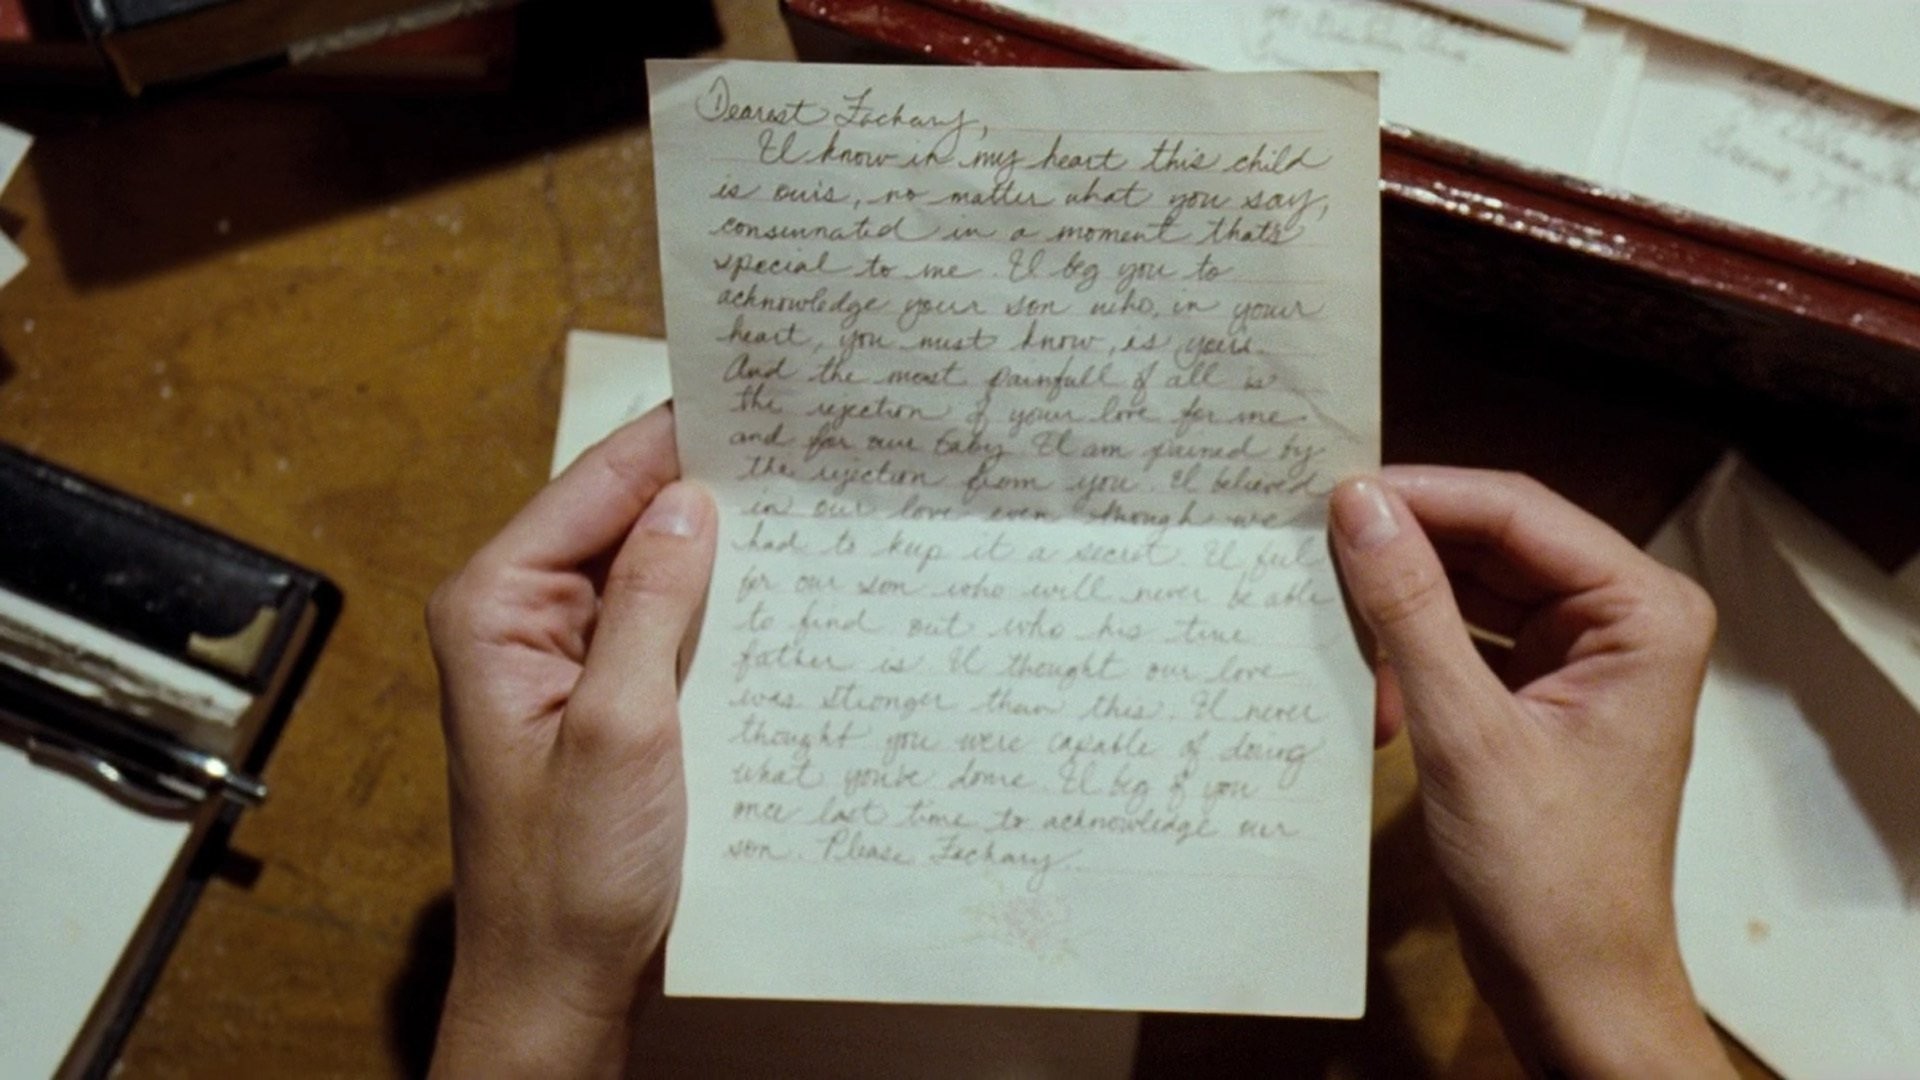 Dearest Zachary,
I know in my heart this child
is ours, no matter what you say,
consumated in a moment that's
special to me. I beg you to
acknowledge your son who, in your
heart, you must know, is yours.
And the most painfull of all is
the rejection of your love for me
and for our baby. I am pained by
the rejection from you. I believed
in our love even though we
had to keep it a secret. I feel
for our son who will never be able
to find out who his true
father is. I thought our love
was stronger than this. I never
thought you were capable of doing
what you've done. I beg of you
once last time to acknowledge our
son. Please Zachary.